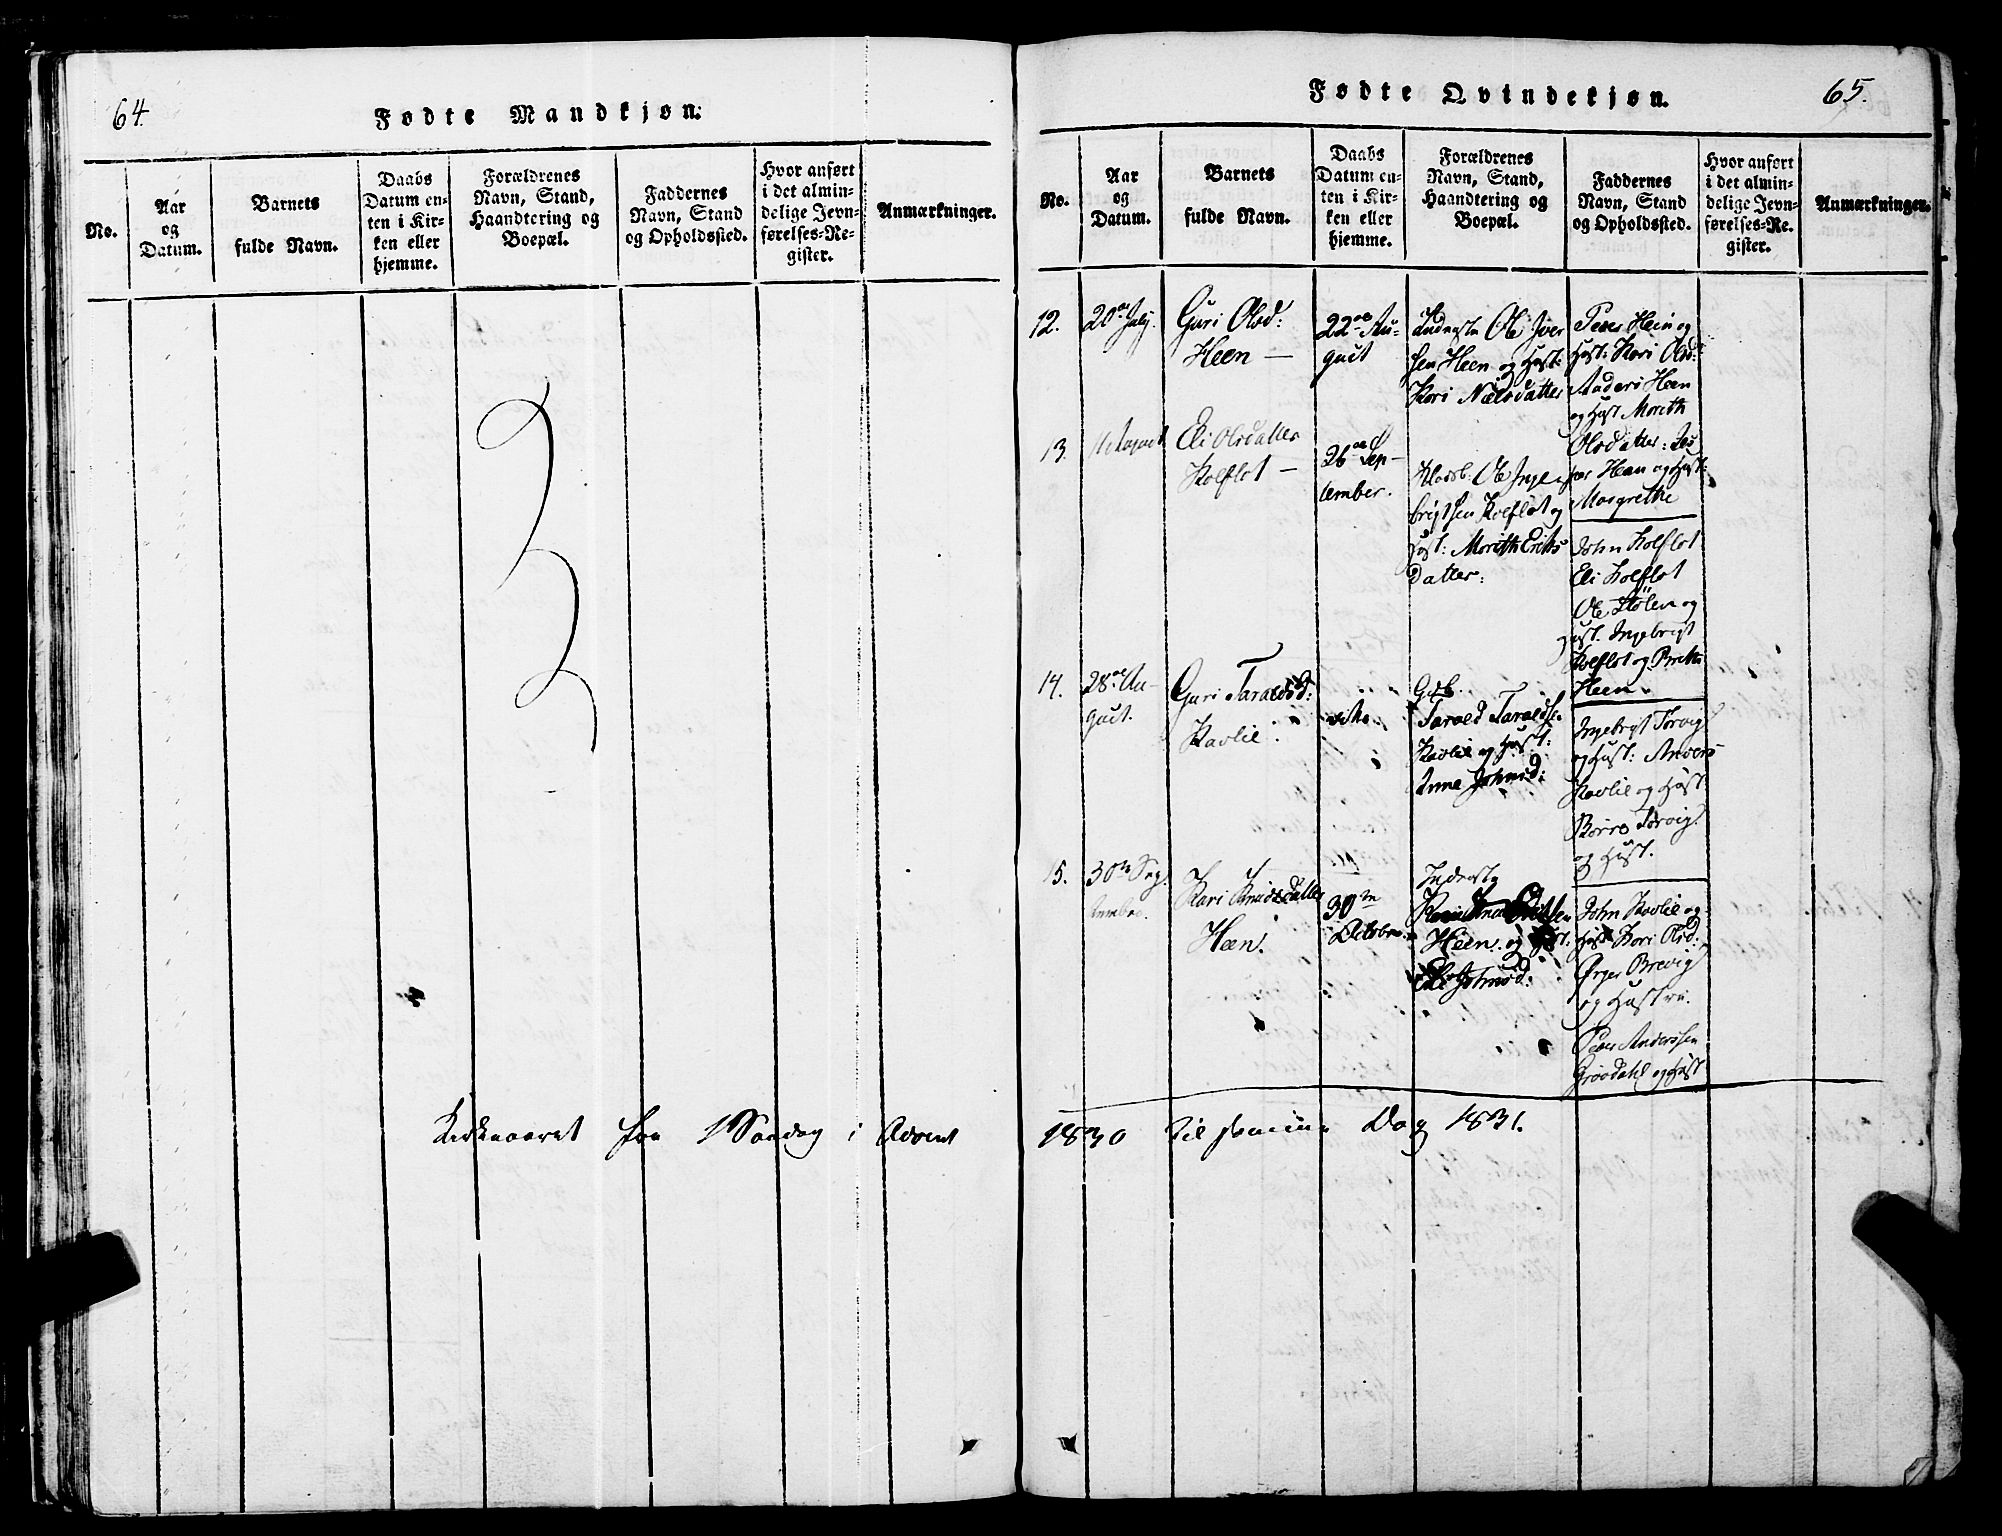 64.
Fødte Mandkjøn:
No.
Aar
og
Datum.
Barnets
fulde Navn.
Daabs
Datum en-
ten i Kir-
ken eller
hjemme.
Forældrenes
Navn, Stand,
Haandtering og
Boepæl.
Faddernes
Navn, Stand
og Opholdssted.
Hvor anført
i det almin-
delige Jevn-
førelses-Re-
gister.
Anmærkninger.
65.
Fødte Qvindekjøn.
No.
Aar
og
Datum.
Barnets
fulde Navn.
Daabs
Datum en-
ten i Kir-
ken eller
hjemme.
Forældrenes
Navn, Stand,
Haandtering og
Boepæl.
Faddernes
Navn, Stand
og Opholdssted.
Hvor anført
i det almin-
delige Jevn-
førelses-Re-
gister.
Anmærkninger.
12.
20de July.
Guri Olsd:
Heen —
22de Au-
gust
Inderste Ole Iver
sen Heen og Hust:
Kari Nielsdatter
Peder Hein og
Hust: Kari Olsd:
Anders Heen
og Hust Marith
Olsdatter:
Heen og Hust:
Margrethe
13.
August
Eli Olsdatter
Kolflot —
26de Sep-
tember.
Ole Inge-
brigtsen Kolflot og
Hust: Marith Eriks
datter:
John Kolflot
Eli Kolflot
Ole Stölen og
Hust. Ingebrigt
Kolflot og
Heen.
14.
28de Au-
gust.
Guri Taraldsd:
Kavlie.
Gdb.
Tarald Taraldse
Kavlie og Hust:
Anne Johnsd:
Ingebrigt Torvig
og Hust: Anders
Kavlie og Hust
Torvig
og Hust.
15.
30te Sep-
tember.
Kari Knudsdatter
Heen.
30te
October
Inderste
Heen og Hust.
Johnsd:
John Kavlie og
Hust Kari Olsd:
Brevig
og Hustru.
Peder Anderssen
Grøvdahl og Hust
Kirkeaaret fra 1 Søndag i Advent 1830 til samme Dag 1831.